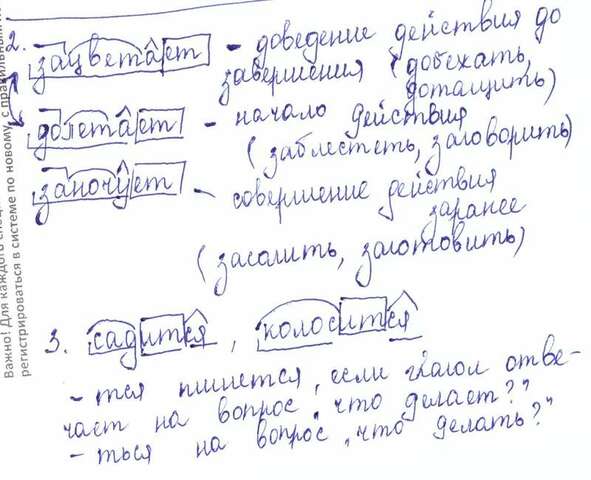 2. зацветает - доведение действия до
завершения (добежать,
дотащить)
долетает - начало действия
(заблестеть, заговорить)
заночует - совершение действия
заранее
(засолить, заготовить)
3. садится, колосится
- тся пишется, если глагол отве-
чает на вопрос "что делает?"
- ться на вопрос "что делать?"
Важно! Для каждого
регистрироваться в системе по новому, с правильным